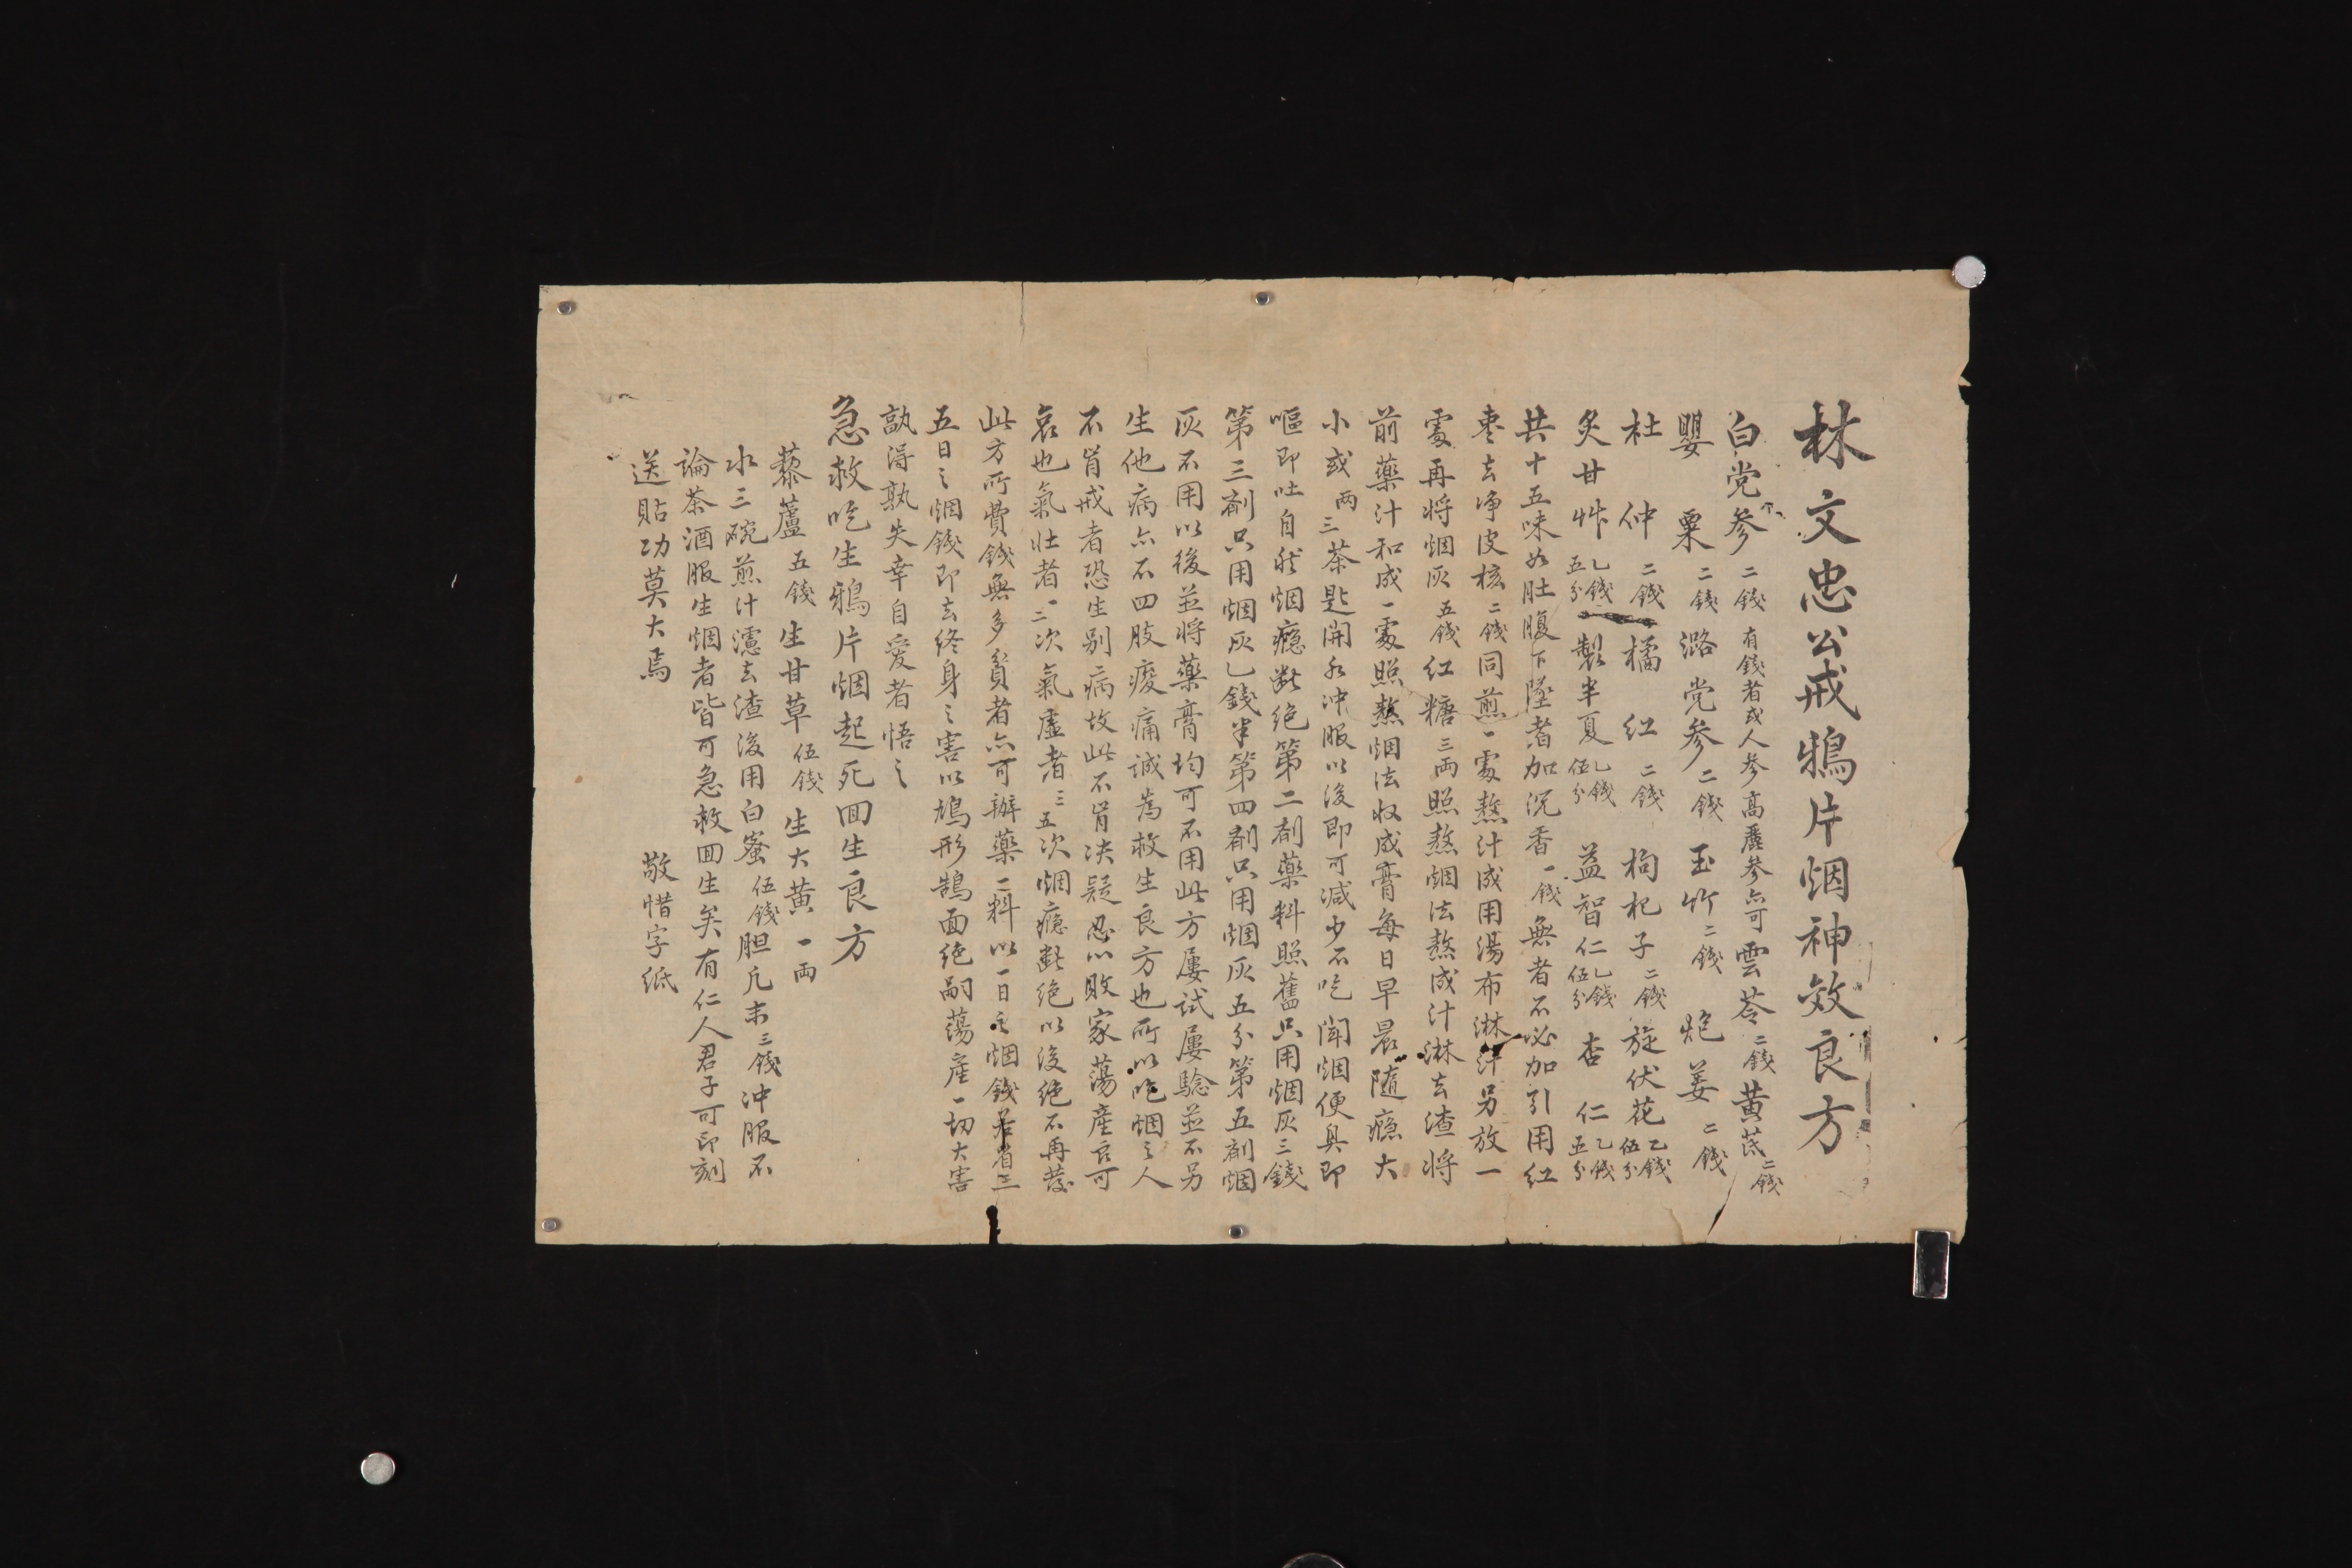 林文忠公戒鴉片烟神效良方
白党参二錢有錢者或人參高麗參亦可雲苓二錢黃芪二錢
罌粟二錢潞党参二錢玉竹二錢炮姜二錢
杜仲二錢橘紅二錢枸杞子二錢旋伏花乙錢伍分
炙甘艸乙錢五分製半夏乙錢伍分益智仁乙錢伍分杏仁乙錢五分
共十五味如肚腹下墜者加沉香一錢無者不必加引用红
枣去净皮核二錢同煎一處熬汁成用湯布淋汁另放一
處再将烟灰五錢红糖三両照熬烟法熬成汁淋去渣将
前藥汁和成一處照熬烟法收成膏每日早晨隨癮大
小或両三茶匙開水冲服以後即可減少不吃聞烟便臭即
嘔即吐自然烟癮断绝第二剤藥料照舊只用烟灰三錢
第三剤只用烟灰乙錢半第四剤只用烟灰五分第五剤烟
灰不用以後並将藥膏均可不用此方屢試屢驗並不另
生他病亦不四肢痠痛诚爲救生良方也所以吃烟之人
不肯戒者恐生别病故此不肯决疑忍心敗家蕩產良可
哀也氣壮者一二次氣虛者三五次烟癮断绝以後绝不再發
此方所費錢無多貧者亦可辦藥一料以一日之烟錢若省三
五日之烟錢即去终身之害以鳩形鵠面绝嗣蕩產一切大害
孰得孰失幸自爱者悟之
急救吃生鴉片烟起死回生良方
藜蘆五錢生甘草伍錢生大黄一両
水三碗煎汁濾去渣後用白蜜伍錢胆凡末三錢冲服不
論茶酒服生烟者皆可急救回生矣有仁人君子可印刻
送貼功莫大焉　敬惜字纸